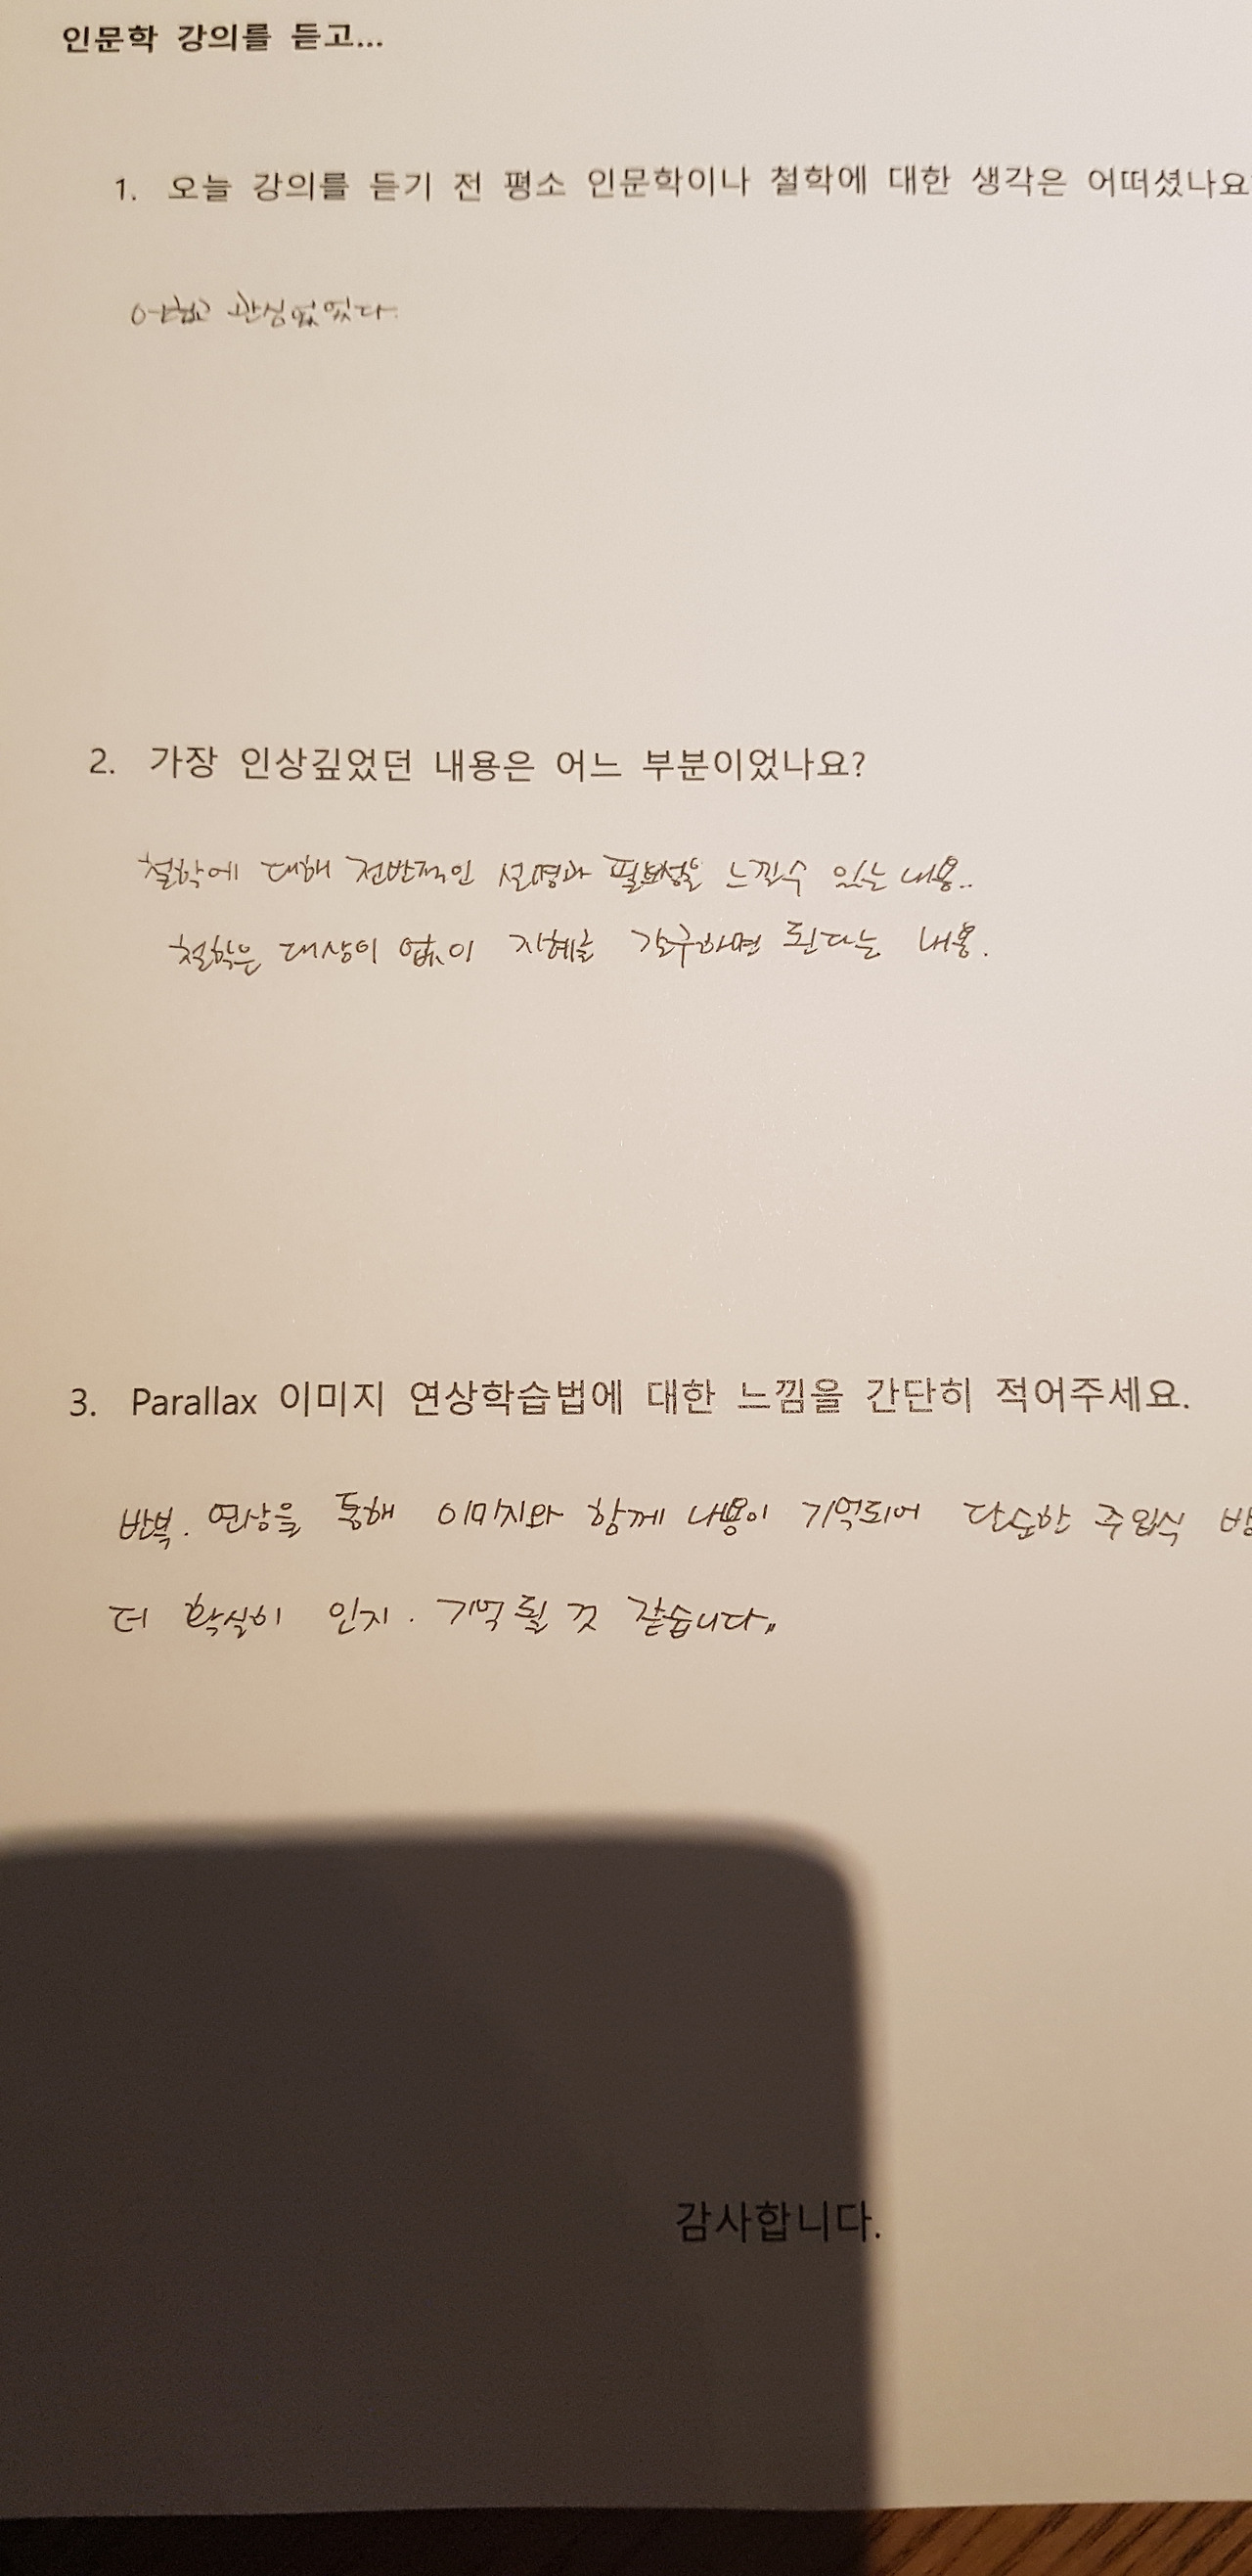 인문학 강의를 듣고...
1. 오늘 강의를 듣기 전 평소 인문학이나 철학에 대한 생각은 어떠셨나요
어렵고 관심없었다.
2. 가장 인상깊었던 내용은 어느 부분이었나요?
철학에 대해 전반적인 설명과 필요성을 느낄수 있는 내용..
철학은 대상이 없이 지혜를 갈구하면 된다는 내용.
3. Parallax 이미지 연상학습법에 대한 느낌을 간단히 적어주세요.
반복. 연상을 통해 이미지와 함께 내용이 기억되어 단순한 주입식
더 확실히 인지. 기억될 것 같습니다.
감사합니다.